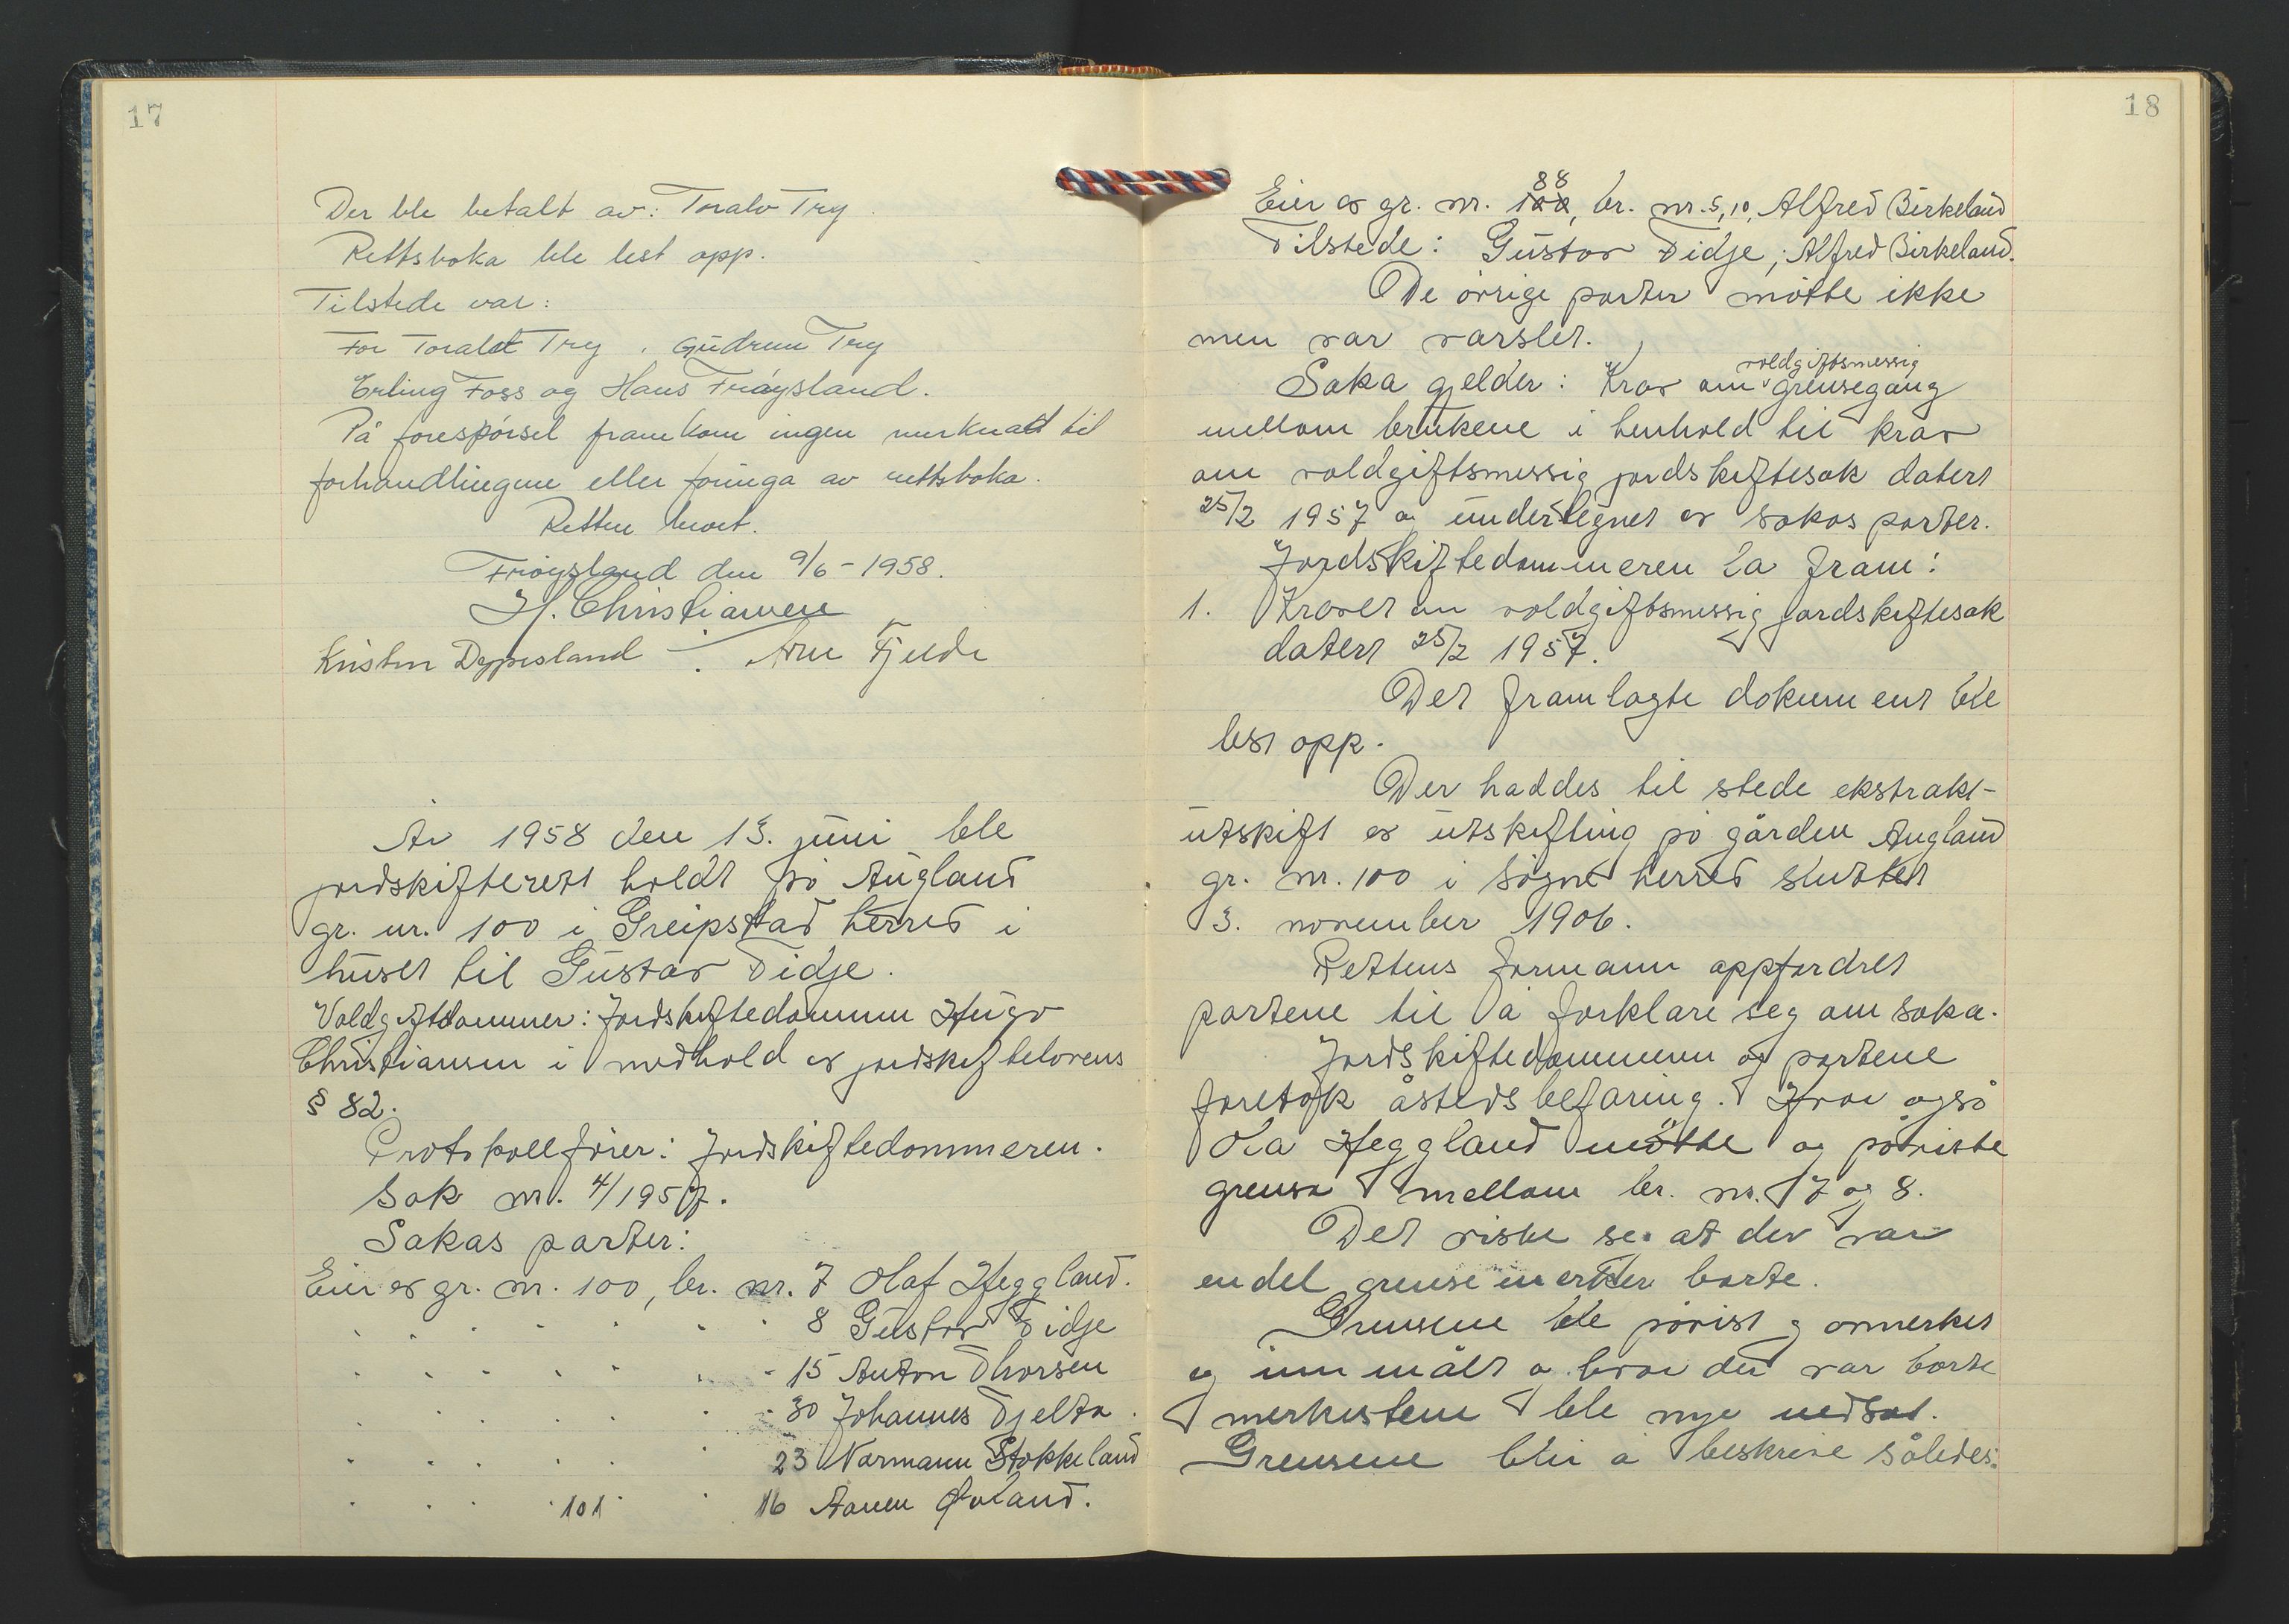 17
Der ble betalt av: Toralv Try.
Rettsboka ble lest opp.
Tilstede var:
For Toralv Try, Gudrun Try
Erling Foss og Hans Frøysland.
På forespørsel framkom ingen merknad til
forhandlingene eller føringa av rettsboka.
Retten hevet.
Frøysland den 9/6-1958.
H. Christiansen
Kristen Deppesland . Arne Fjelde
År 1958 den 13. juni ble
jordskifterett holdt på Augland
gr. nr. 100 i Greipstad herred i
huset til Gustav Tidje.
Voldgiftdommer: Jordskiftedommer Hugo
Christiansen i medhold av jordskiftelovens
§ 82.
Protokollfører: Jordskiftedommeren.
Sak nr. 4/1957.
Sakas parter:
Eier av gr. nr. 100, br. nr. 7 Olaf Heggland.
" " " " " " 8 Gustav Tidje
" " " " " " 15 Anton Thorsen
" " " " " " 30 Johannes Tjelta.
" " " " " " 23 Normann Stokkeland
" " " 101 " 16 Aanen Øvland.
18
Eier av gr. nr. 88, br. nr. 5, 10, Alfred Birkeland
Tilstede: Gustav Tidje, Alfred Birkeland.
De øvrige parter møtte ikke
men var varslet.
Saka gjelder: Krav om voldgiftsmessig grensegang
mellom brukene i henhold til krav
om voldgiftsmessig jordskiftesak datert
25/2 1957 og undertegnet av sakas parter.
Jordskiftedommeren la fram:
1. Kravet om voldgiftsmessig jordskiftesak
datert 25/2 1957.
Det framlagte dokument ble
lest opp.
Der haddes til stede ekstrakt-
utskift av utskifting på gården Augland
gr. nr. 100 i Søgne herred sluttet
3. november 1906.
Rettens formann oppfordret
partene til å forklare seg om saka.
Jordskiftedommeren og partene
foretok åstedsbefaring. Hvor også
Ola Heggland møtte og påviste
grensa mellom br. nr. 7 og 8.
Det viste seg at der var
endel grensemerker borte.
Grensene ble påvist og avmerket
og innmålt og hvor der var borte
merkestene ble nye nedsat.
Grensene blir å beskrive således: